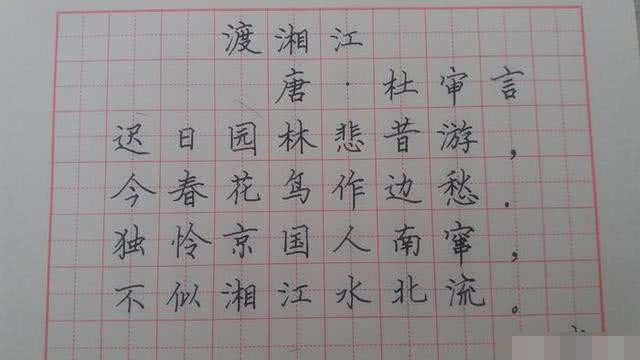 渡湘江
唐·杜审言
迟日园林悲昔游，
今春花鸟作边愁.
独怜京国人南窜，
不似湘江水北流。